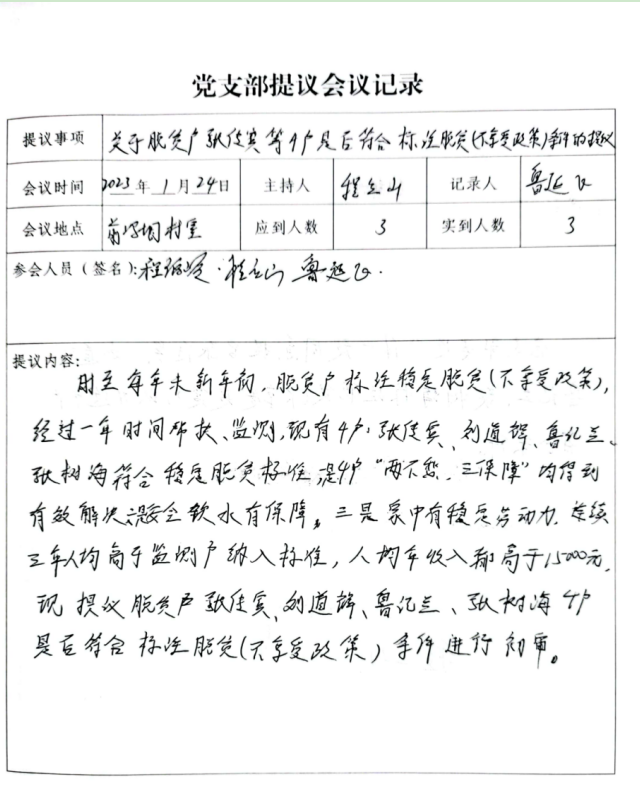 党支部提议会议记录
提议事项 关于脱贫户张传宾等4户是否符合标注脱贫(不享受政策)条件的提议
会议时间 2023年1月24日 主持人 程立山 记录人 鲁延飞
会议地点 村室 应到人数 3 实到人数 3
参会人员(签名): 程立山 鲁延飞.
提议内容:
时至每年末新年初,脱贫户标注稳定脱贫(不享受政策),
经过一年时间帮扶、监测,现有4户:张传宾、刘道锋、鲁亿兰、
张树海符合稳定脱贫标准,一是4户“两不愁、三保障”均得到
有效解决,二是安全饮水有保障,三是家中有稳定劳动力,连续
三年人均高于监测户纳入标准,人均年收入都高于15000元,
现提议脱贫户张传宾、刘道锋、鲁亿兰、张树海4户
是否符合标注脱贫(不享受政策)条件进行初审。